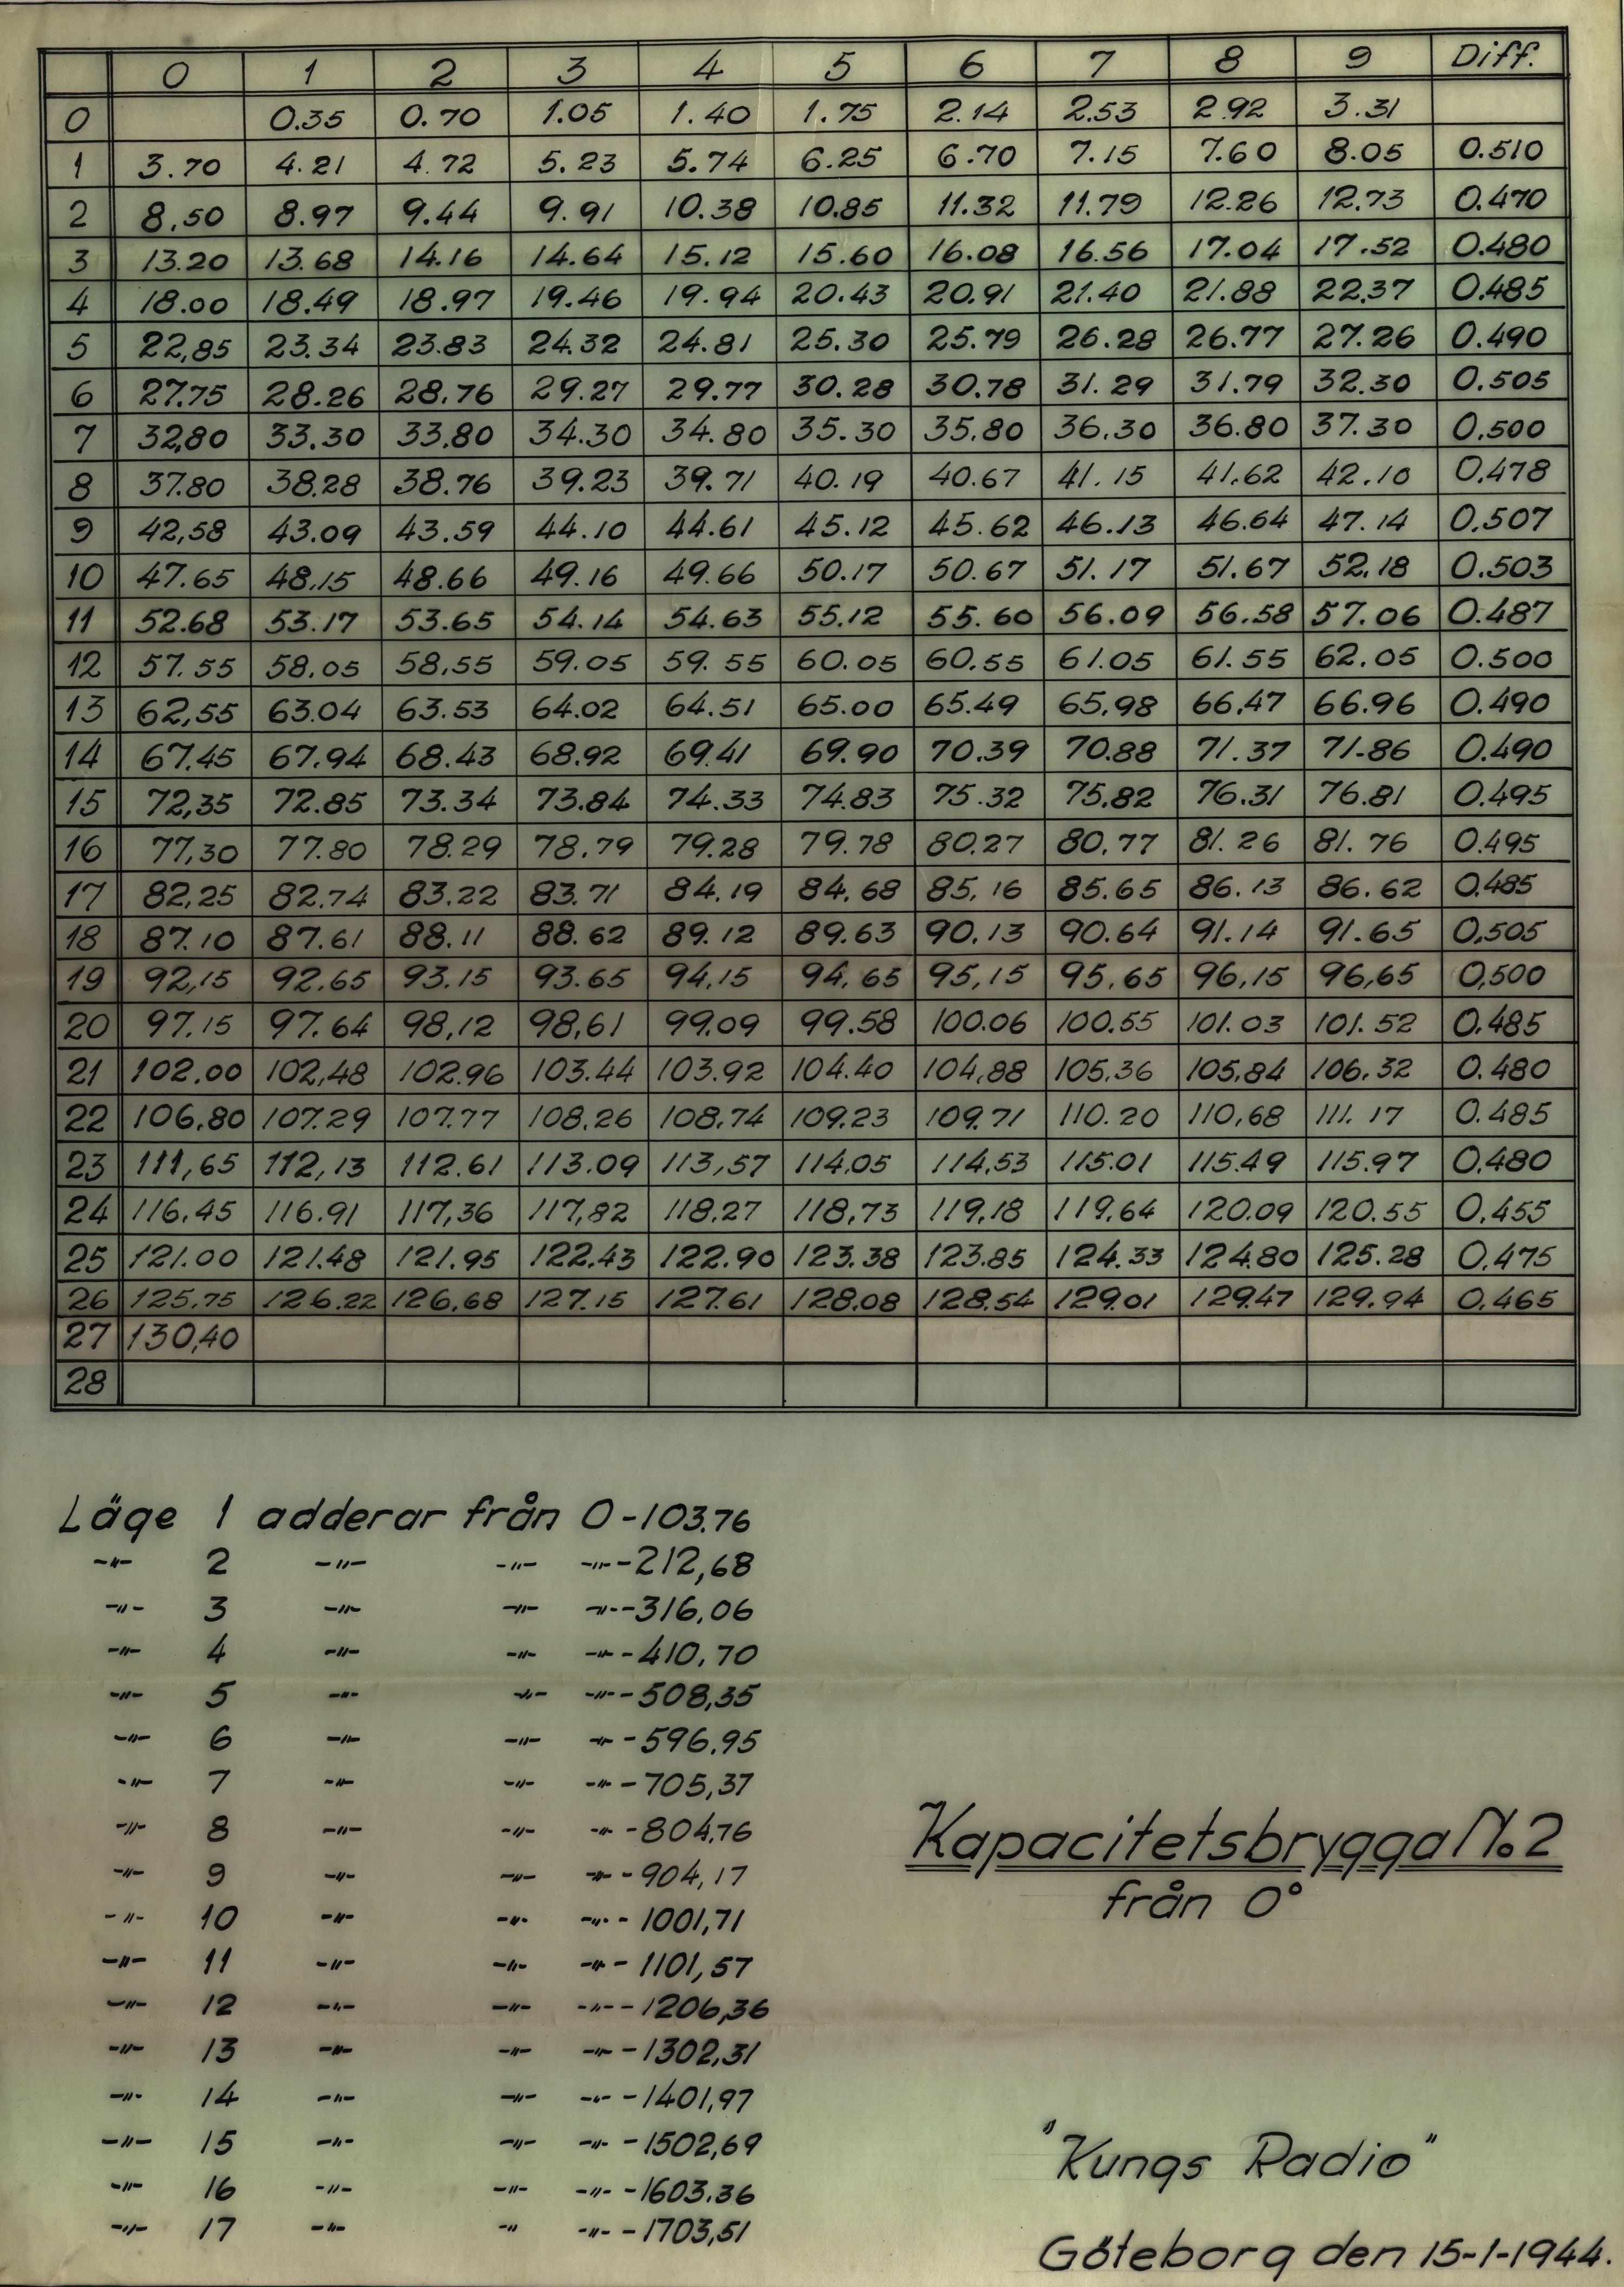 0 1 2 3 4 5 6 7 8 9 Diff.
0 0.35 0.70 1.05 1.40 1.75 2.14 2.53 2.92 3.31
1 3.70 4.21 4.72 5.23 5.74 6.25 6.70 7.15 7.60 8.05 0.510
2 8,50 8.97 9.44 9.91 10.38 10.85 11.32 11.79 12.26 12.73 0.470
3 13.20 13.68 14.16 14.64 15.12 15.60 16.08 16.56 17.04 17.52 0.480
4 18.00 18.49 18.97 19.46 19.94 20.43 20.91 21.40 21.88 22.37 0.485
5 22,85 23.34 23.83 24.32 24.81 25.30 25.79 26.28 26.77 27.26 0.490
6 27.75 28.26 28.76 29.27 29.77 30.28 30.78 31.29 31.79 32.30 0.505
7 32,80 33.30 33,80 34.30 34.80 35.30 35,80 36.30 36.80 37.30 0.500
8 37.80 38.28 38.76 39.23 39.71 40.19 40.67 41.15 41.62 42.10 0.478
9 42,58 43.09 43.59 44.10 44.61 45.12 45.62 46.13 46.64 47.14 0,507
10 47.65 48,15 48.66 49.16 49.66 50.17 50.67 51.17 51.67 52.18 0.503
11 52.68 53.17 53.65 54.14 54.63 55.12 55.60 56.09 56.58 57.06 0.487
12 57.55 58.05 58,55 59.05 59.55 60.05 60.55 61.05 61.55 62.05 0.500
13 62,55 63.04 63.53 64.02 64.51 65.00 65.49 65,98 66,47 66.96 0.490
14 67.45 67.94 68.43 68.92 69.41 69.90 70.39 70.88 71.37 71.86 0.490
15 72,35 72.85 73.34 73.84 74.33 74.83 75.32 75,82 76.31 76.81 0.495
16 77,30 77.80 78.29 78.79 79.28 79.78 80.27 80.77 81.26 81.76 0.495
17 82,25 82.74 83.22 83.71 84.19 84.68 85,16 85.65 86.13 86.62 0.485
18 87.10 87.61 88.11 88.62 89.12 89.63 90,13 90.64 91.14 91.65 0,505
19 92,15 92.65 93.15 93.65 94,15 94,65 95,15 95,65 96,15 96,65 0,500
20 97.15 97.64 98,12 98,61 99.09 99.58 100.06 100.55 101.03 101.52 0.485
21 102.00 102,48 102.96 103.44 103.92 104.40 104,88 105,36 105,84 106,32 0.480
22 106,80 107.29 107.77 108,26 108,74 109,23 109.71 110.20 110,68 111.17 0.485
23 111,65 112,13 112.61 113.09 113,57 114,05 114,53 115.01 115.49 115.97 0,480
24 116,45 116.91 117,36 117,82 118.27 118,73 119,18 119,64 120.09 120.55 0,455
25 121.00 121.48 121.95 122.43 122.90 123.38 123.85 124.33 124.80 125.28 0,475
26 125.75 126.22 126,68 127.15 127.61 128.08 128.54 129.01 129.47 129.94 0,465
27 130,40
28
Läge 1 adderar från 0-103.76
-"- 2 -"- -"- -"--212,68
-"- 3 -"- -"- -"--316,06
-"- 4 -"- -"- -"--410,70
-"- 5 -"- -"- -"--508,35
-"- 6 -"- -"- -"--596.95
-"- 7 -"- -"- -"--705,37
-"- 8 -"- -"- -"--804,76
-"- 9 -"- -"- -"--904,17
-"- 10 -"- -"- -"--1001,71
-"- 11 -"- -"- -"--1101,57
-"- 12 -"- -"- -"--1206,36
-"- 13 -"- -"- -"--1302,31
-"- 14 -"- -"- -"--1401,97
-"- 15 -"- -"- -"--1502,69
-"- 16 -"- -"- -"--1603.36
-"- 17 -"- " -"--1703,51
Kapacitetsbrygga No 2
från 0°
"Kungs Radio"
Göteborg den 15-1-1944.